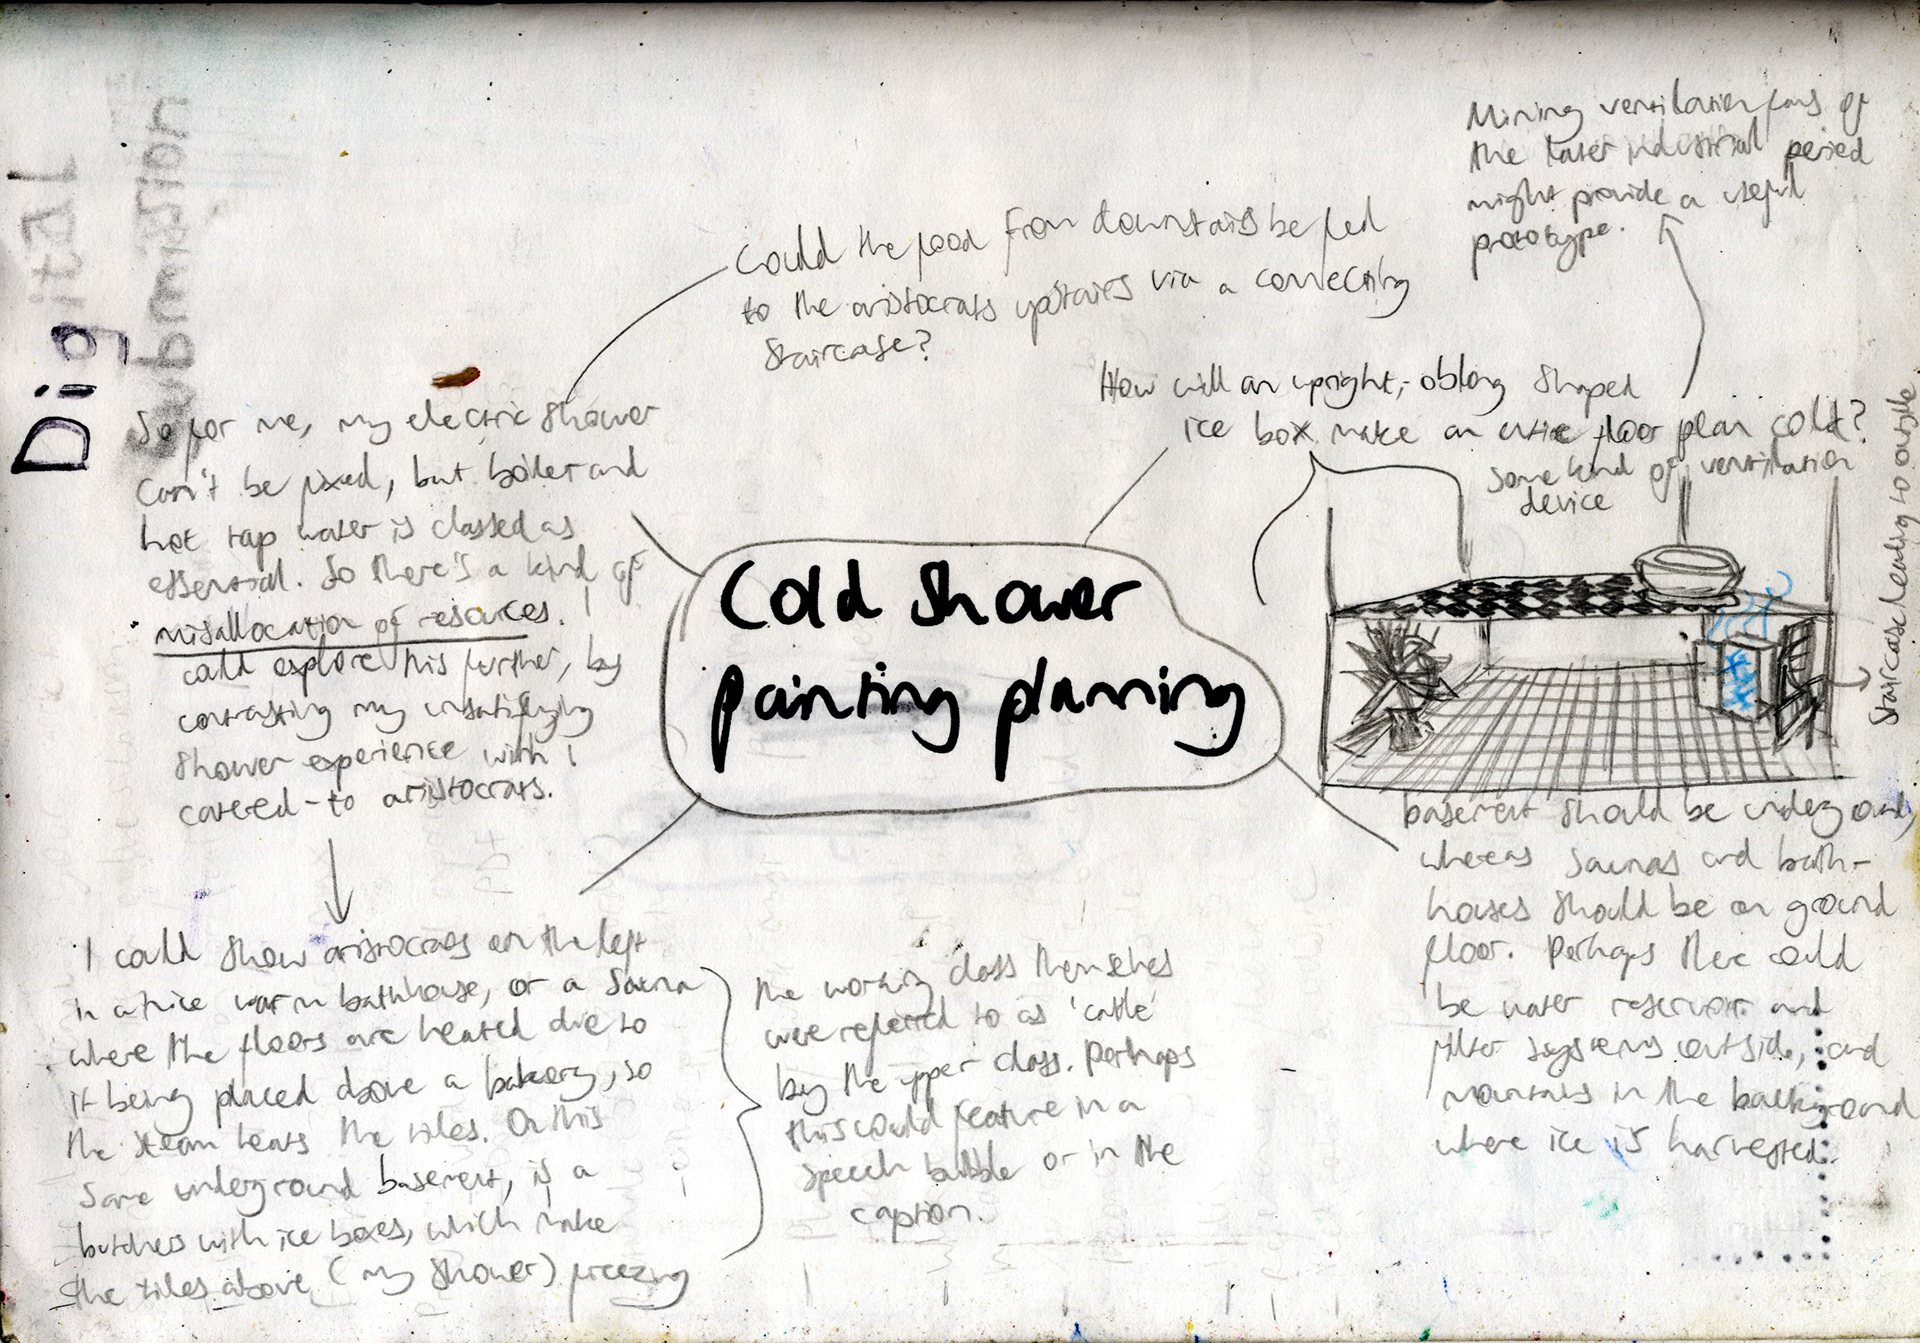 Digital
submission
Mining ventilation fans of
the later industrial period
might provide a useful
prototype.
Could the food from downstairs be fed
to the aristocrats upstaires via a connecting
Staircase?
How will an upright, oblong shaped
ice box make an entire floor plan cold?
Some kind of ventilation
device
Staircase leading to outside
So for me, my electric shower
can't be fixed, but boiler and
hot tap water is classed as
essential. So there's a kind of
misallocation of resources. I
could explore this further, by
contrasting my unsatisfying
shower experience with
catered-to aristocrats.
Cold shower
painting planning
basement should be underground,
whereas saunas and bath-
houses should be on ground
floor. Perhaps there could
be water reservoir and
filter systems outside, and
mountains in the background
where ice is harvested.
I could show aristocrats on the left
in a nice warm bathhouse, or a sauna
where the floors are heated due to
it being placed above a bakery, so
the steam heats the tiles. On this
same underground basement, is a
butchers with ice boxes, which make
the tiles above (my shower) freezing
the working class themselves
were referred to as 'cattle'
by the upper class. Perhaps
this could feature in a
speech bubble or in the
caption.